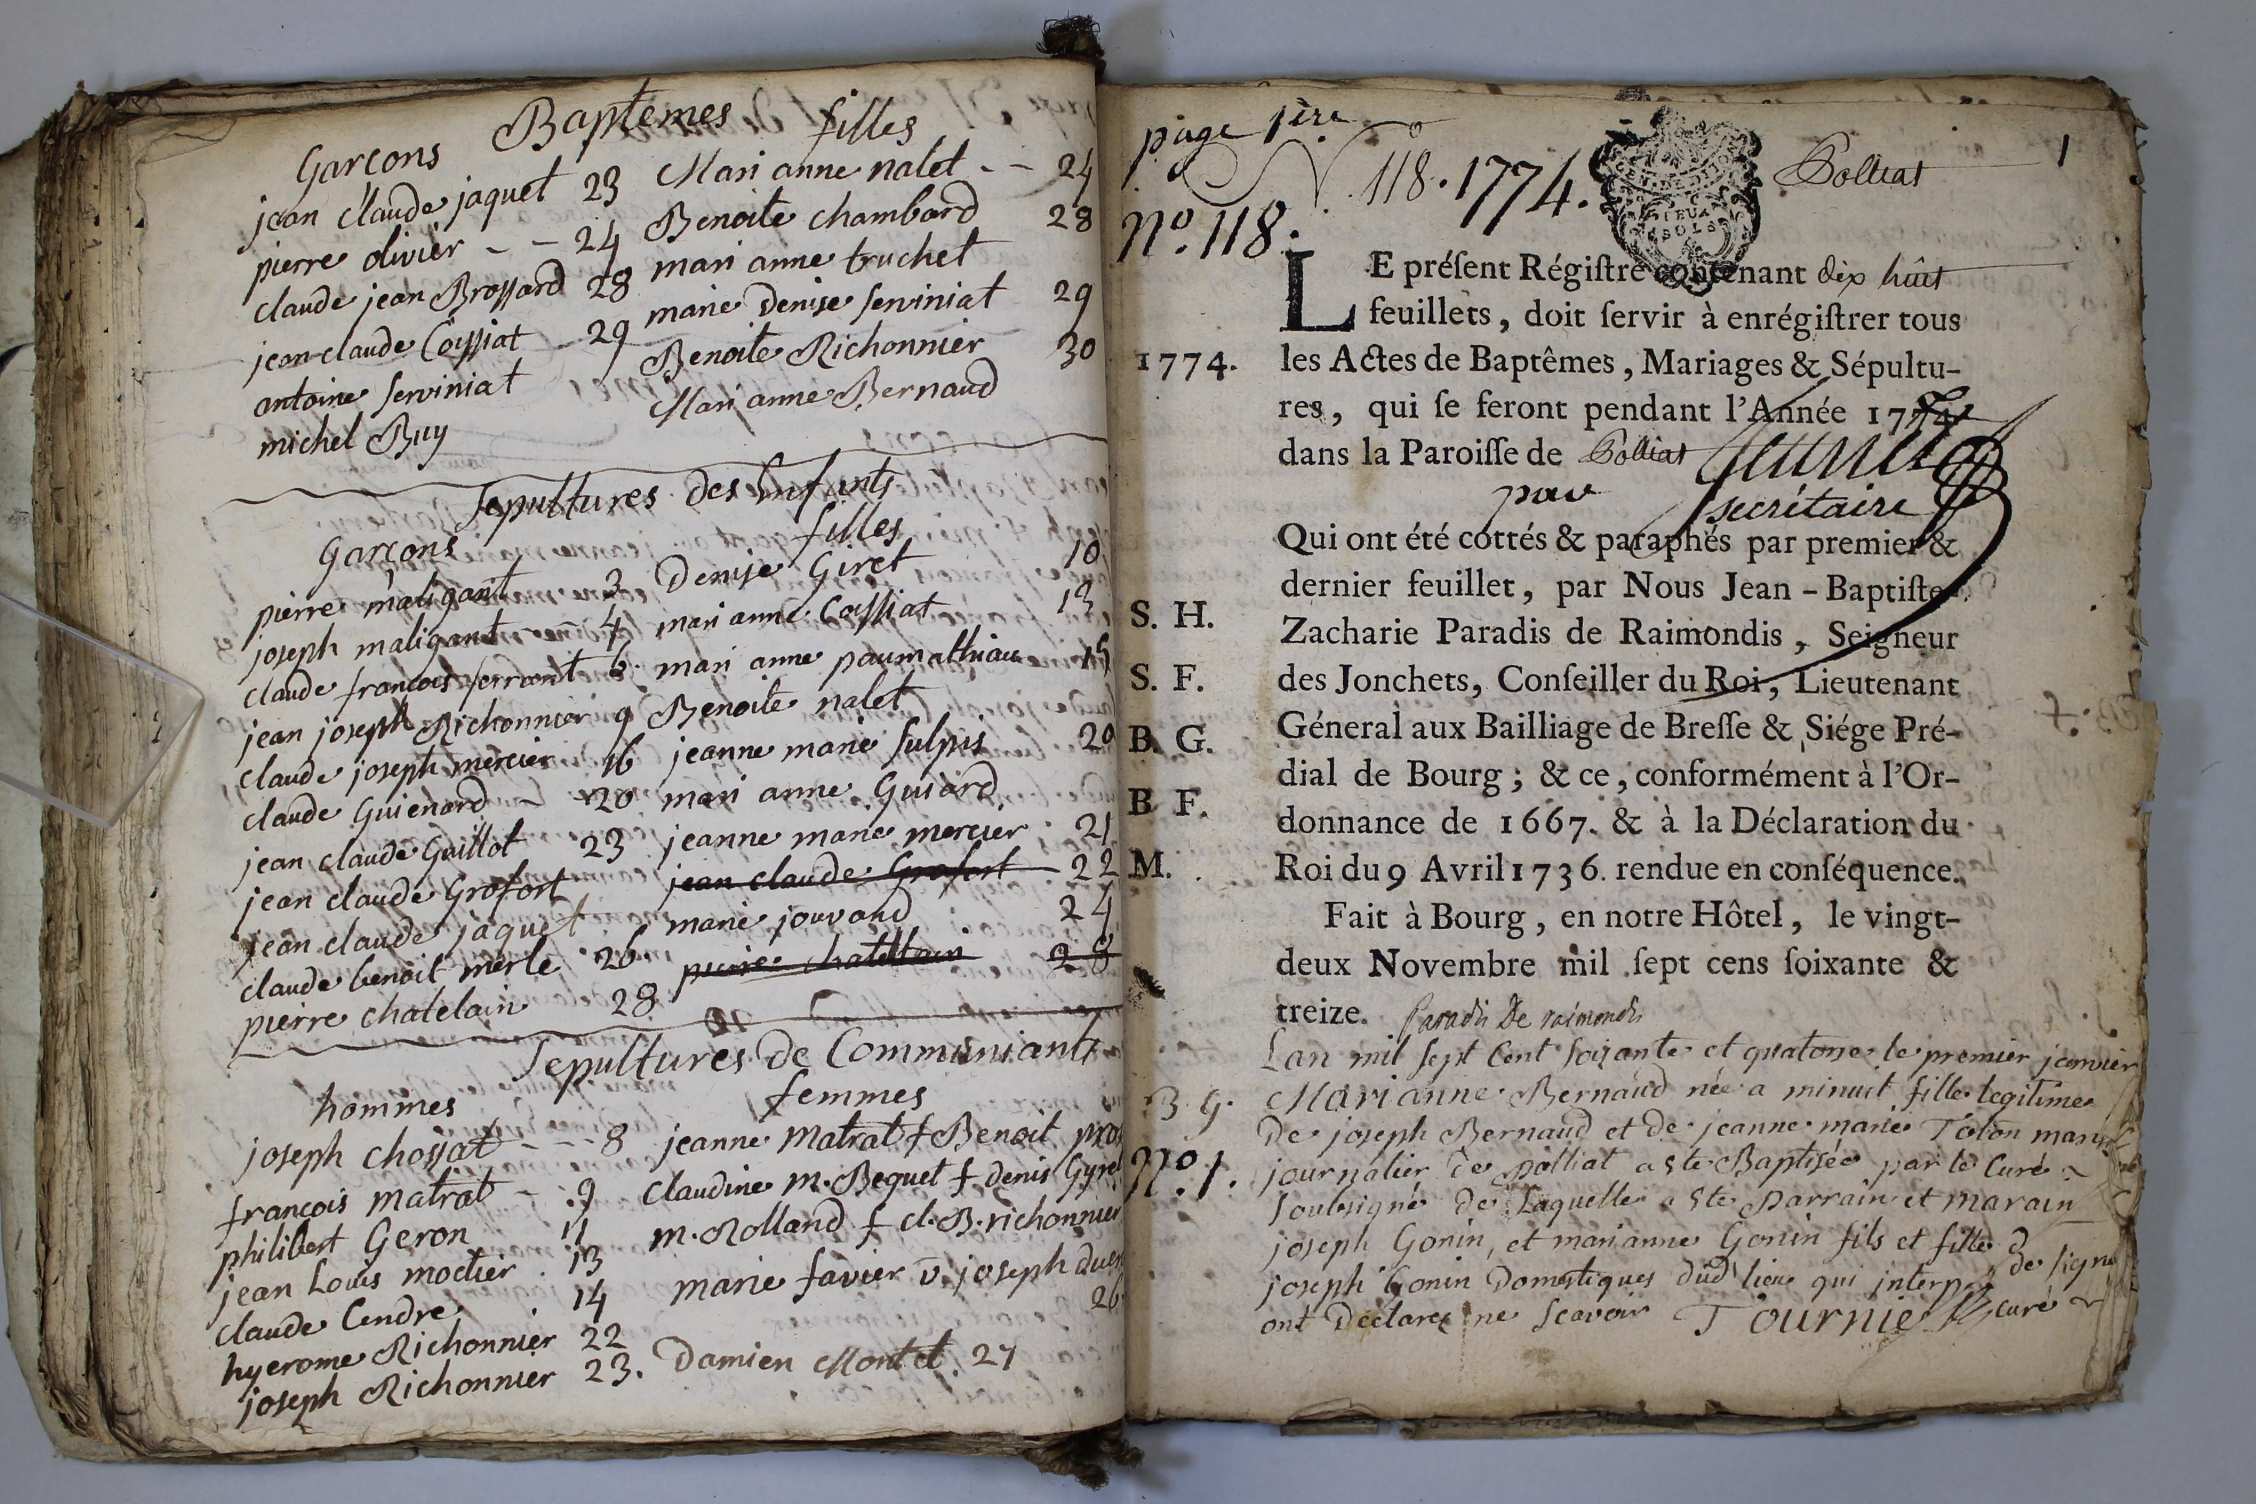 Baptemes
Garcons filles
jean claude jaquet 23 Mari anne nalet - - 24
pierre olivier - - 24 Benoite chambard 28
claude jean Brossard 28 mari anne truchet
jean claude Coissiat 29 marie Denise serviniat 29
antoine serviniat Benoite Richonnier 30
michel Buy Mari anne Bernaud
Sepultures des Enfants
Garcons filles
pierre maligant 3 Denise Giret 10
joseph maligant - - 4 mari anne Coissiat 13
claude francois ferrant 6 mari anne paumathiau 15
jean joseph Richonnier 9 Benoite nalet
claude joseph mercier 16 jeanne marie sulpis 20
claude Guienard - 20 mari anne Guiard
jean claude Guillot 23 jeanne marie mercier 21
jean claude Grofort jean claude Grofort 22
jean claude jaquet marie jouvand 24
claude benoit merle 26 pierre chatellain 28
pierre chatelain 28
Sepultures de Communiants
hommes femmes
joseph chossat - - - 8 jeanne Matrat f Benoit
francois matrat - 9 Claudine m. Bequet f denis Gyret
philibert Geron 11 m. Rolland f cl. B. richonnier
jean Louis moctier 13 marie favier v. joseph
claude Cendre 14 26
hyerome Richonnier 22
joseph Richonnier 23. Damien Montet 27
page 1ere
N 118. 1774. Polliat 1
DEUX
SOLS
No. 118.
LE préſent Régiſtre contenant dix huit
feuillets, doit ſervir à enrégiſtrer tous
1774. les Actes de Baptêmes, Mariages & Sépultu-
res, qui ſe feront pendant l'Année 1774
dans la Paroiſſe de Polliat
par secrétaire
Qui ont été cottés & paraphés par premier &
dernier feuillet, par Nous Jean-Baptiſte-
S. H. Zacharie Paradis de Raimondis, Seigneur
S. F. des Jonchets, Conſeiller du Roi, Lieutenant
Géneral aux Bailliage de Breſſe & Siége Pré-
B. G. dial de Bourg; & ce, conformément à l'Or-
B F. donnance de 1667. & à la Déclaration du
M. Roi du 9 Avril 1736. rendue en conſéquence.
Fait à Bourg, en notre Hôtel, le vingt-
deux Novembre mil ſept cens ſoixante &
treize. Paradis De raimondis
Lan mil sept Cent soixante et quatorze le premier janvier
B g. Marianne Bernaud née a minuit fille legitime
De joseph Bernaud et de jeanne marie Tolon
No. 1. journalier de polliat a ste Baptisée par le Curé
soubsigné de Laquelle a ste parrain et marain
joseph Gonin, et marianne Gonin fils et fille d
joseph Gonin Domestiques dud lieu qui de signe
ont Declaré ne scavoir Tournier curé